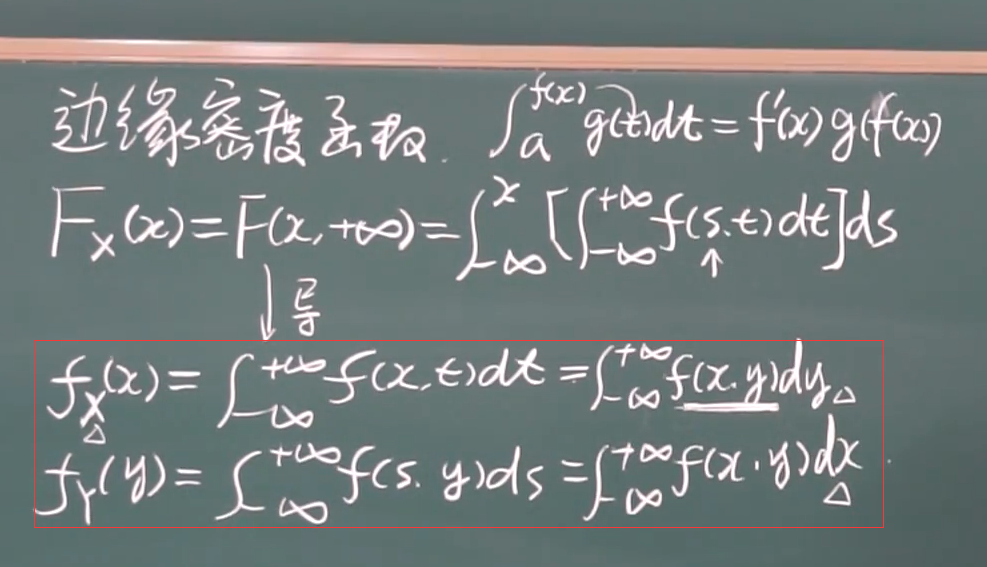 边缘密度函数. ∫_a^{f(x)} g(t)dt = f'(x)g(f(x))
F_X(x)=F(x,+∞)=∫_{-∞}^{x}[∫_{-∞}^{+∞}f(s,t)dt]ds
↑
↓导
f_X(x)=∫_{-∞}^{+∞}f(x,t)dt=∫_{-∞}^{+∞}f(x,y)dy
f_Y(y)=∫_{-∞}^{+∞}f(s,y)ds=∫_{-∞}^{+∞}f(x,y)dx